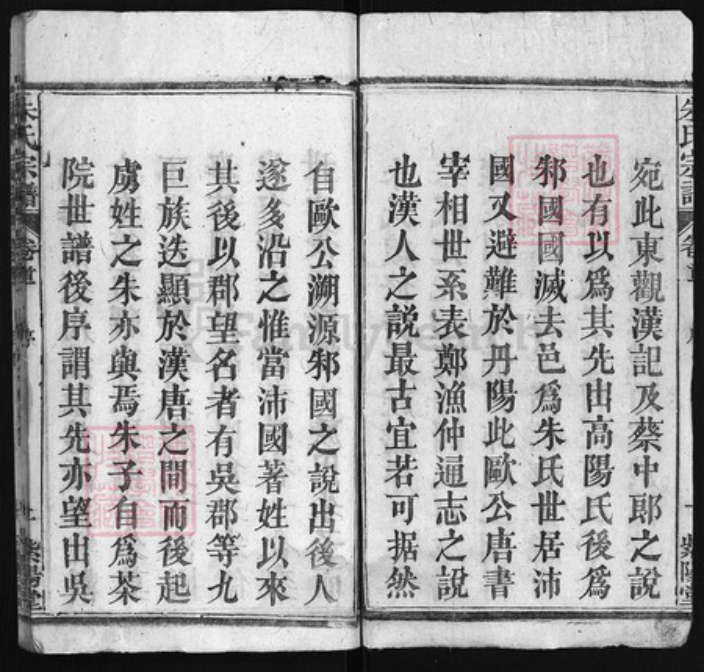 宛此東觀漢記及蔡中郎之說
也有以爲其先出高陽氏後爲
邾國國滅去邑爲朱氏世居沛
國又避難於丹陽此歐公唐書
宰相世系表鄭漁仲通志之說
也漢人之說最古宜若可据然
自歐公溯源邾國之說出後人
遂多沿之惟當沛國著姓以來
其後以郡望名者有吳郡等九
巨族迭顯於漢唐之間而後起
虜姓之朱亦與焉朱子自爲茶
院世譜後序謂其先亦望出吳
朱氏宗譜
卷首
序
紫陽堂
朱氏宗譜
卷首
紫陽堂
FamilySearch